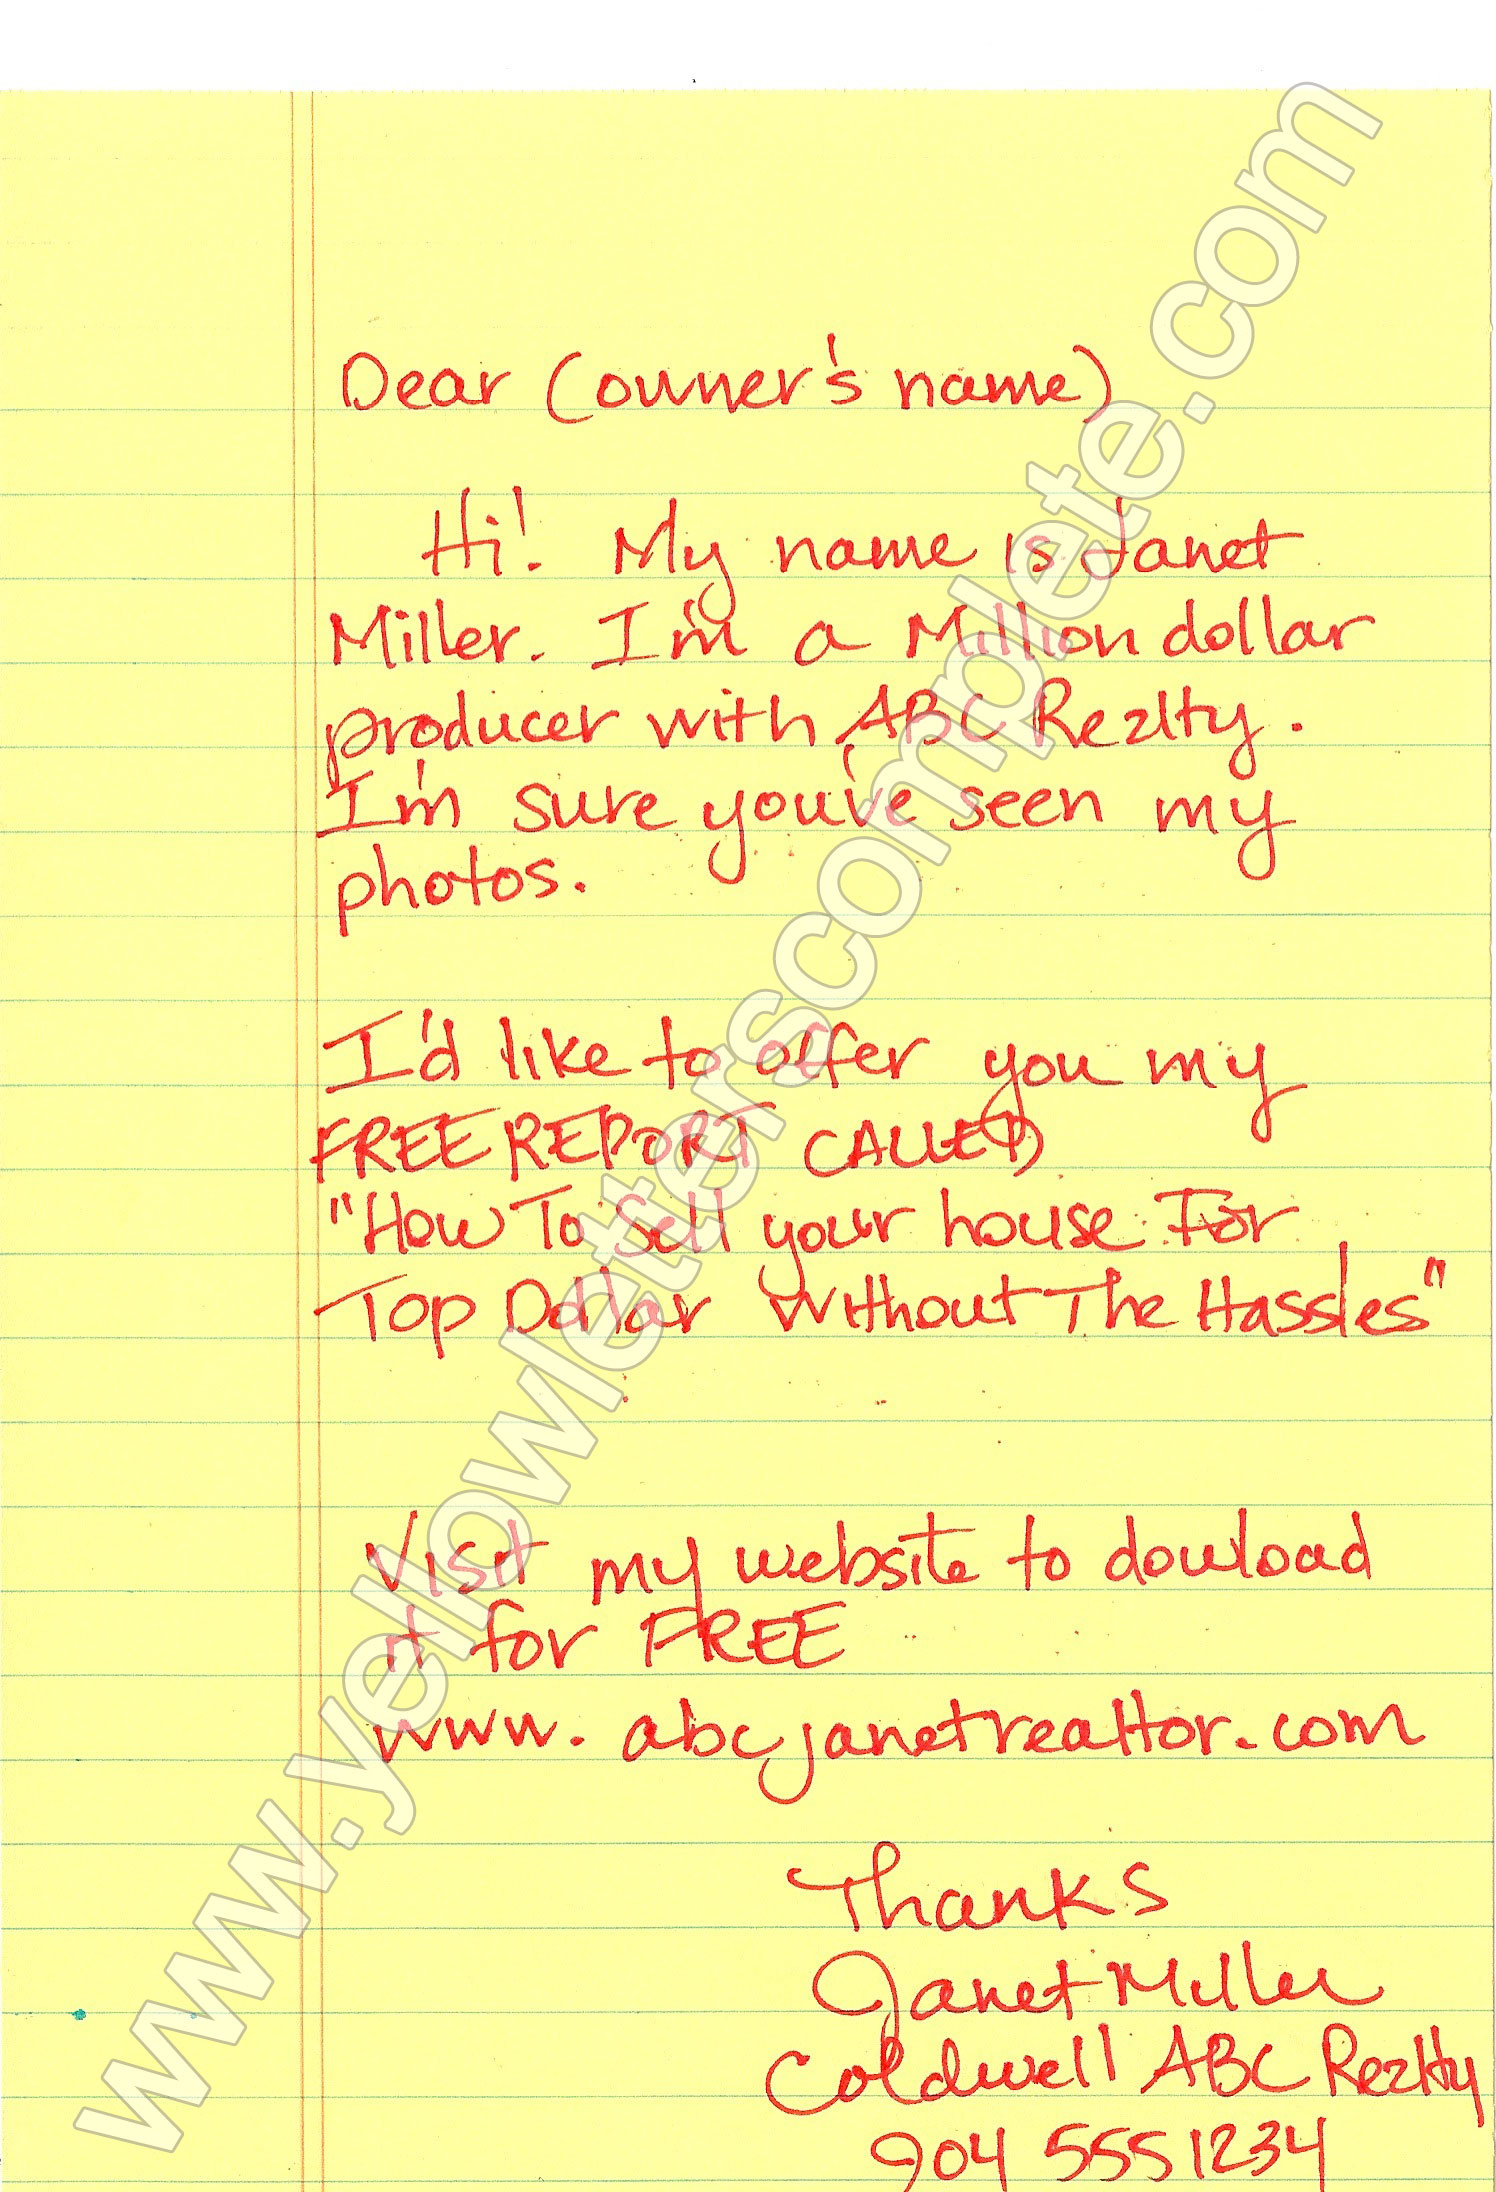 Dear (owner's name)
Hi! My name is Janet
Miller. I'm a Million dollar
producer with ABC Realty.
I'm sure you've seen my
photos.
I'd like to offer you my
FREE REPORT CALLED
"How To Sell your house For
Top Dollar Without The Hassles"
Visit my website to download
it for FREE
www.abcjanetrealtor.com
Thanks
Janet Miller
Coldwell ABC Realty
904 555 1234
www.yellowletterscomplete.com